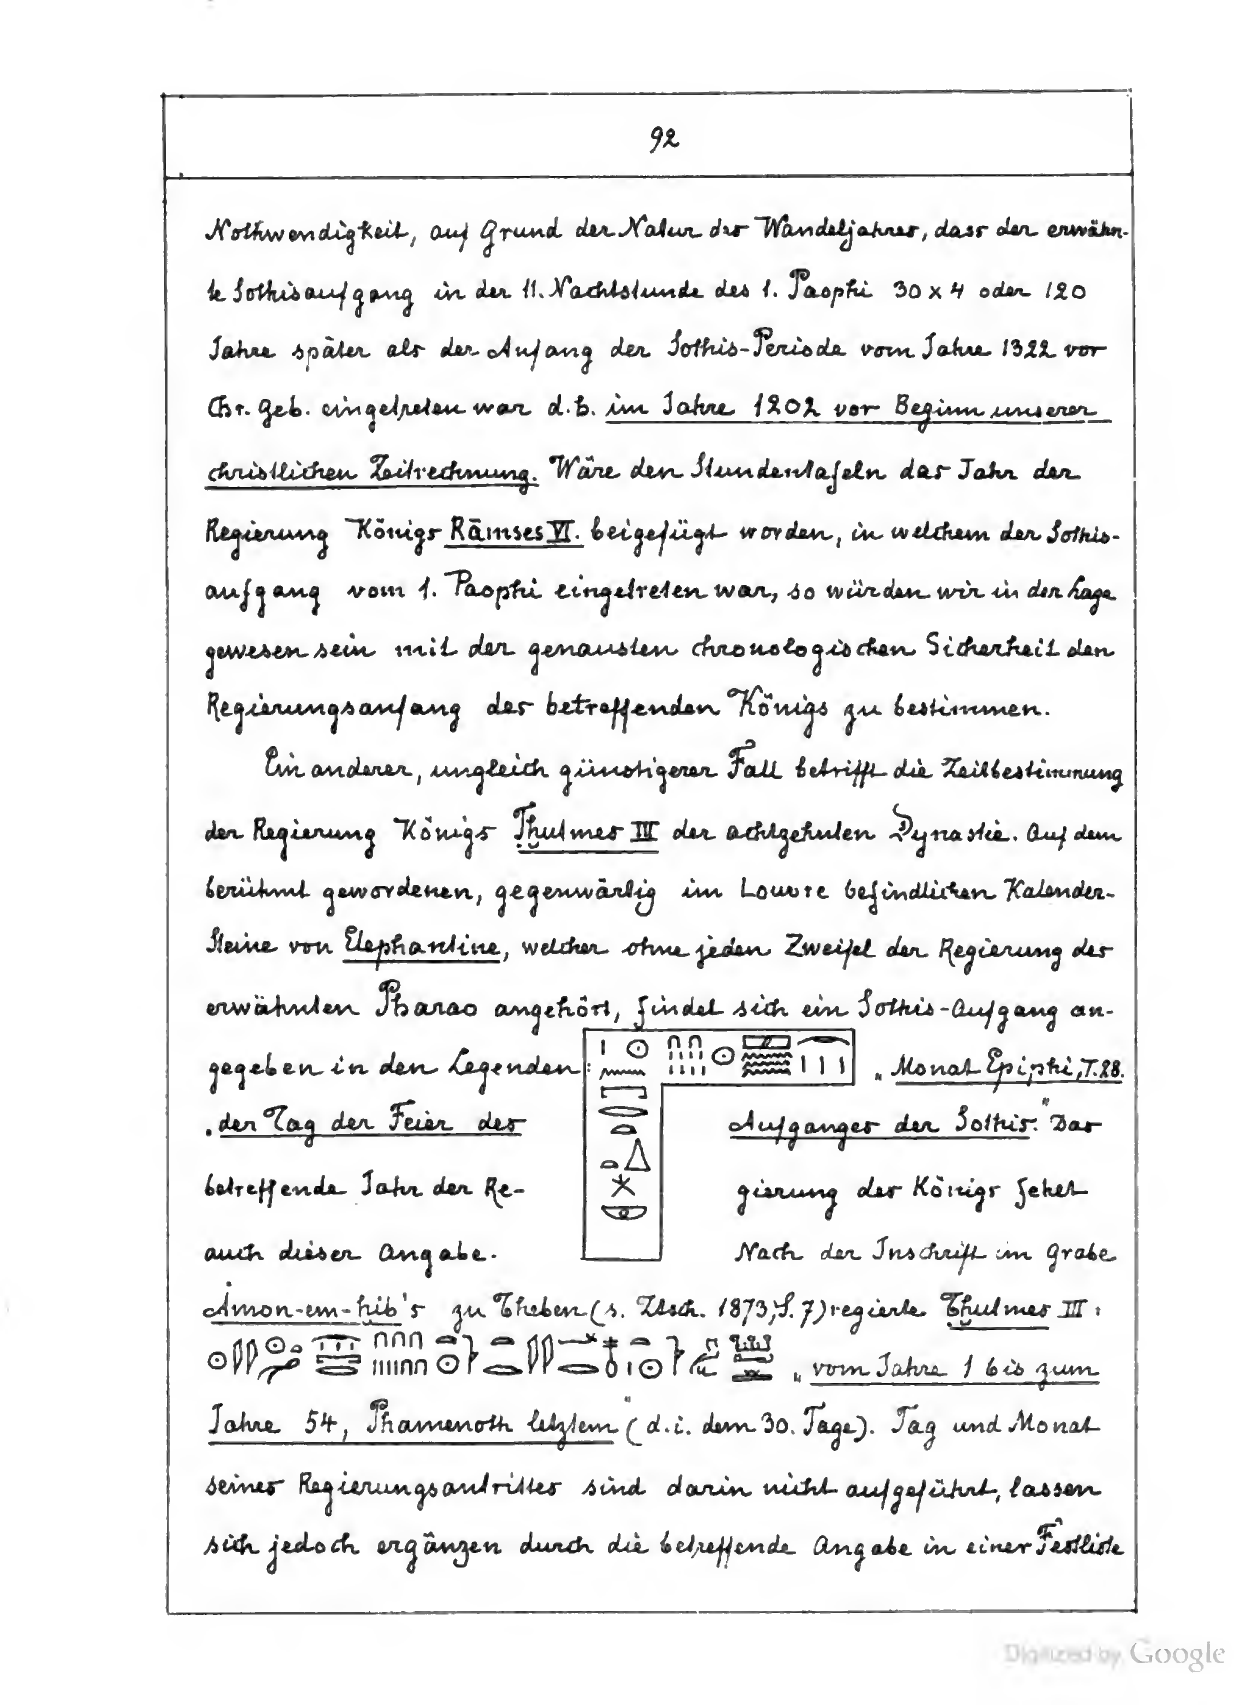 92
Nothwendigkeit, auf Grund der Natur des Wandeljahres, dass der erwähn-
te Sothisaufgang in der 11. Nachtstunde des 1. Paophi 30 x 4 oder 120
Jahre später als der Anfang der Sothis-Periode vom Jahre 1322 vor
Chr. Geb. eingetreten war d.h. im Jahre 1202 vor Beginn unserer
christlichen Zeitrechnung. Wäre den Stundentafeln das Jahr der
Regierung Königs Rāmses VI. beigefügt worden, in welchem der Sothis-
aufgang vom 1. Paophi eingetreten war, so würden wir in der Lage
gewesen sein mit der genausten chronologischen Sicherheit den
Regierungsanfang des betreffenden Königs zu bestimmen.
Ein anderer, ungleich günstigerer Fall betrifft die Zeitbestimmung
der Regierung Königs Thutmes III der achtzehnten Dynastie. Auf dem
berühmt gewordenen, gegenwärtig im Louvre befindlichen Kalender-
Steine von Elephantine, welcher ohne jeden Zweifel der Regierung des
erwähnten Pharao angehört, findet sich ein Sothis-Aufgang an-
gegeben in den Legenden: „Monat Epiphi, T. 28.
der Tag der Feier des Aufganges der Sothis." Das
betreffende Jahr der Re- gierung des Königs fehlt
auch dieser Angabe. Nach der Inschrift im Grabe
Amon-em-hib's zu Theben (s. Ztsch. 1873, S. 7) regierte Thutmes III:
„vom Jahre 1 bis zum
Jahre 54, Phamenoth letztem" (d.i. dem 30. Tage). Tag und Monat
seines Regierungsantrittes sind darin nicht aufgeführt, lassen
sich jedoch ergänzen durch die betreffende Angabe in einer Festliste
Digitized by Google